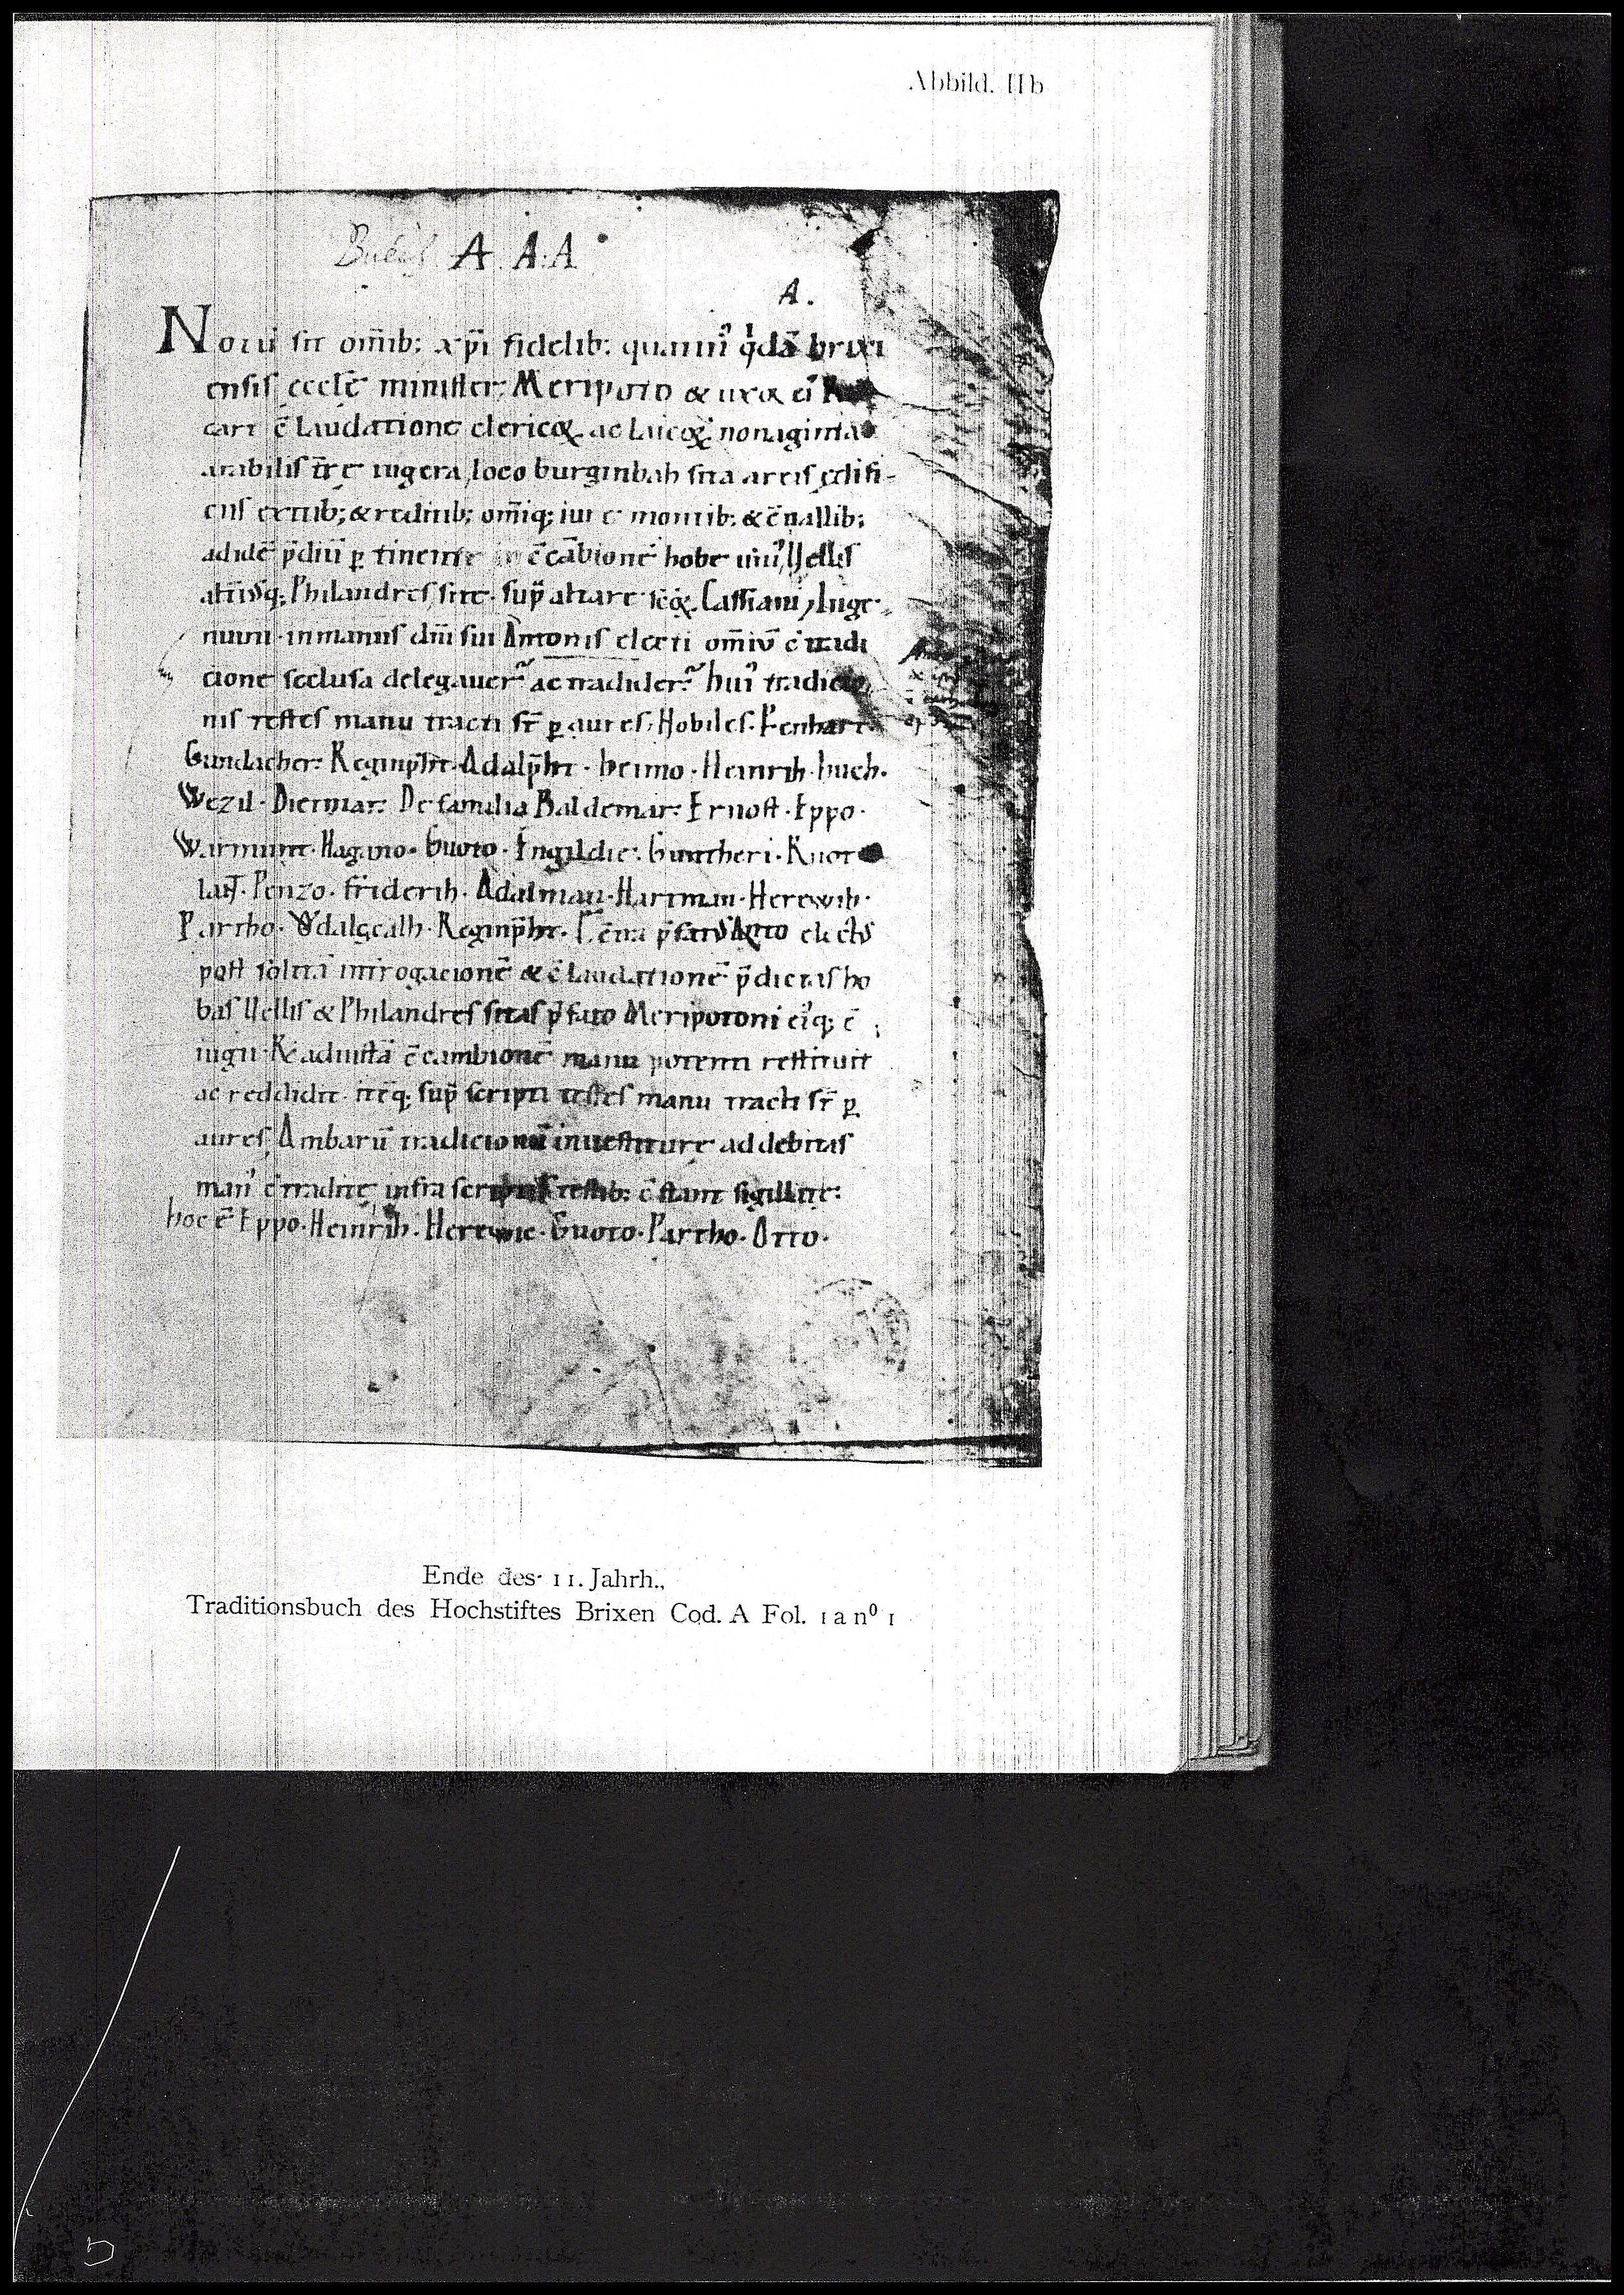 Abbild. IIb
A A A
A.
Nouū sit om̄ib; xp̄i fidelib; q̇dā brixi
ensis eccl̄ę minister Meripoto & uxor ei᾿
cart c̄ laudatione clericoꝝ ac laicoꝝ nonaginta
arabilis tr̄ę iugera loco burginbah sita areis ędifi-
ciis exitib; & reditib; om̄iq; iure montib; & c̄uallib;
ad idē p̄diū ꝑtinente c̄cābione hobe Uellis
Philandres site sup̄ altare sc̄oꝝ Cassiani, Inge-
nuini in manus dn̄i sui Attonis electi om̄iū c̄tradi
cione seclusa delegauer̄ ac tradider̄ hui᾿ tradicio
nis testes manu tracti sr̄ ꝑ aures. Nobiles. Penhart
Gundacher. Reginp̄ht. Adalp̄ht. heimo. Heinrih. huch.
Wezil. Dietmar. De familia Baldemar. Ernost. Eppo.
Warmunt. Hagano. Guoto. Engildie. Guntheri. Ruot
Penzo. friderih. Adalman. Hartman. Herewih.
Partho. Ŏdalscalh. Reginp̄ht. Atto
post solitā int̄rogacionē & c̄laudationē p̄dictas ho
bas Uellis & Philandres sitas p̄fato Meripotoni ei᾿q; c̄
iugi R adiustā c̄cambionē manu potenti restituit
ac reddidit. itēq; sup̄ scripti testes manu tracti sr̄ ꝑ
aures. Ambarū tradicionū inuestiture ad debitas
man᾿ c̄tradite infra scriptis testib; c̄stant sigillate:
hoc ē Eppo. Heinrih. Herewic. Guoto. Partho. Otto.
Ende des 11. Jahrh.,
Traditionsbuch des Hochstiftes Brixen Cod. A Fol. 1 a n⁰ 1